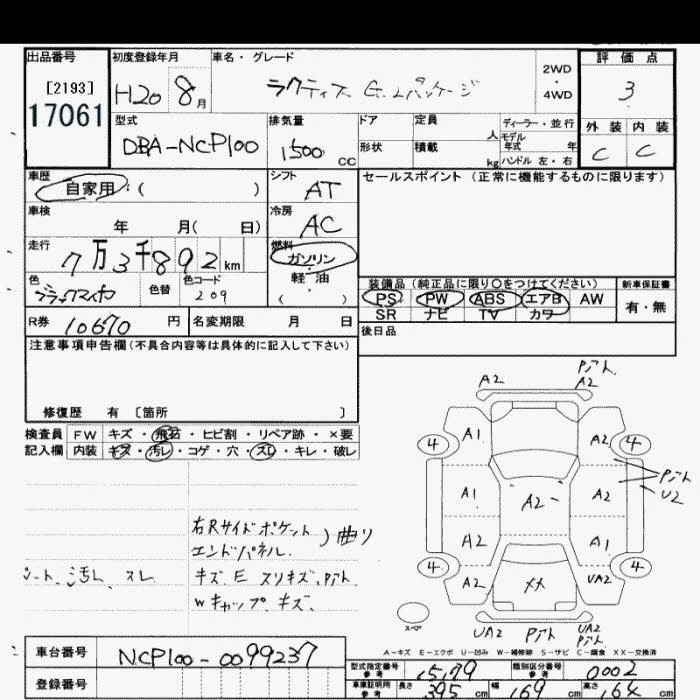 出品番号 初度登録年月 車名・グレード 評価点
[2193]
17061
H20 8月 ラクティス G.Lパッケージ 2WD・4WD 3
型式 排気量 ドア 定員 人 ディーラー・並行 外装 内装
モデル年式 年
DBA-NCP100 1500cc 形状 積載 kg ハンドル 左・右 C C
車歴 シフト セールスポイント（正常に機能するものに限ります）
自家用・（ ） AT
車検 冷房
年 月（ 日） AC
走行 燃料
7万3千892km ガソリン
色 色替 色コード 軽・油
ブラックマイカ 209 （ ）
装備品（純正品に限り○をつけてください） 新車保証書
PS PW ABS エアB AW 有・無
SR ナビ TV カワ
R券 10670円 名変期限 月 日 後日品
注意事項申告欄（不具合内容等は具体的に記入して下さい）
修復歴 有 〔箇所 〕
検査員 FW キズ・飛石・ヒビ割・リペア跡・×要
記入欄 内装 キズ・汚レ・コゲ・穴・スレ・キレ・破レ
シート、汚レ、スレ
右Rサイドポケット
エンドパネル. ）曲り
キズ、E スリキズ、Pアト
Wキャップ キズ.
A2 Pアト
A2
4 A1 A2 4
A1 A2- A2 Pアト
U2
A2 A1
4 A2 XX UA2 4
スペア
UA2 Pアト UA2
Pアト
A－キズ E－エクボ U－凹み W－補修跡 S－サビ C－腐食 XX－交換済
車台番号 NCP100-0099237
登録番号
型式指定番号 参考 15179 類別区分番号 参考 0002
車庫証明用 参考 長さ 395cm 幅 169cm 高さ 164cm